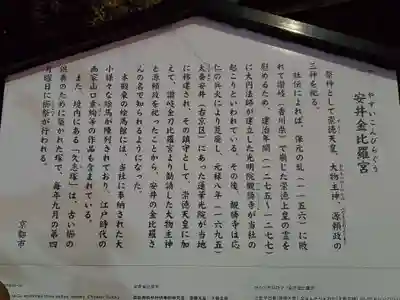 やすいこんぴらぐう
安井金比羅宮
祭神として崇徳天皇、大物主神、源頼政の
三神を祀る。
社伝によれば、保元の乱（一一五六）に敗
れて讃岐（香川県）で崩じた崇徳上皇の霊を
慰めるため、建治年間（一二七五〜一二七七）
に大円法師が建立した光明院観勝寺が当社の
起こりといわれている。その後、観勝寺は応
仁の兵火により荒廃し、元禄八年（一六九五）
太秦安井（右京区）にあった蓮華光院が当地
に移建され、その鎮守として、崇徳天皇に加
えて、讃岐金刀比羅宮より勧請した大物主神
と源頼政を祀ったことから、安井の金比羅さ
んの名で知られるようになった。
本殿東の絵馬館には、当社に奉納された大
小様々な絵馬が陳列されており、江戸時代の
画家山口素絢等の作品も含まれている。
また、境内にある「久志塚」は、古い櫛の
供養のために築かれた塚で、毎年九月の第四
月曜日に櫛祭が行われる。
京都市